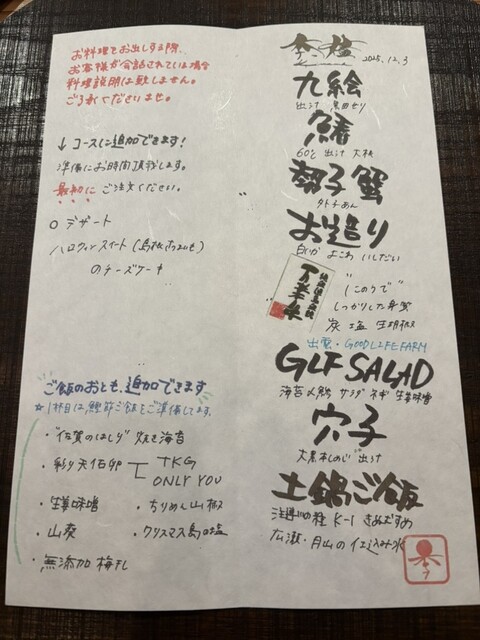 お料理をお出しする際、
お客様が会話されている場合
料理説明は致しません。
ご了承くださいませ。
↓コースに追加できます!
準備にお時間頂戴します。
最初に ご注文ください。
○ デザート
ハロウィンスイート(島根
のチーズケーキ
ご飯のおとも、追加できます
☆1杯目は、鰹節ご飯をご準備してます。
・"佐賀のはしり" 焼き海苔
・彩り天佑卵 TKG
ONLY YOU
・生姜味噌 ・ちりめん山椒
・山葵 ・クリスマス島の塩
・無添加 梅干し
2025.12.3
九絵
出汁 黒田せり
鰆
60℃ 出汁 大根
勢子蟹
お造り
白いか よこわ いしだい
万葉牛
"しんのう"で
しっかりした身質
炭 塩 生胡椒
出雲・GOOD LIFE FARM
GLF SALAD
海苔〆鯖 サラダ ネギ 生姜味噌
穴子
大黒本しめじ 出汁
土鍋ご飯
K-1 きぬむすめ
広瀬・月山の仕込み水